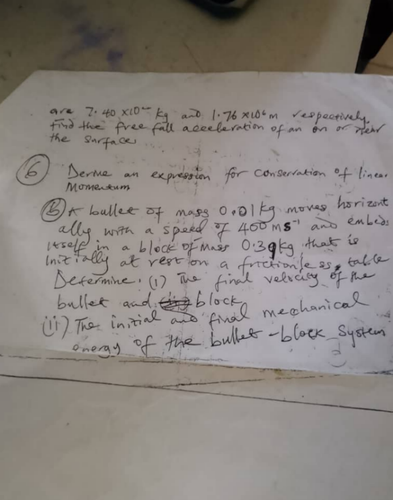 are 7.40 x10²² kg and 1.76 x10⁶ m respectively.
Find the free fall acceleration of an on or near
the surface.
6 Derive an expression for conservation of linear
Momentum
(B) A bullet of mass 0.01 kg moves horizont
ally with a speed of 400 ms⁻¹ and embeds
itself in a block of mass 0.39kg that is
initially at rest on a frictionless table
Determine: (i) The final velocity of the
bullet and block
(ii) The initial and final mechanical
energy of the bullet-block system